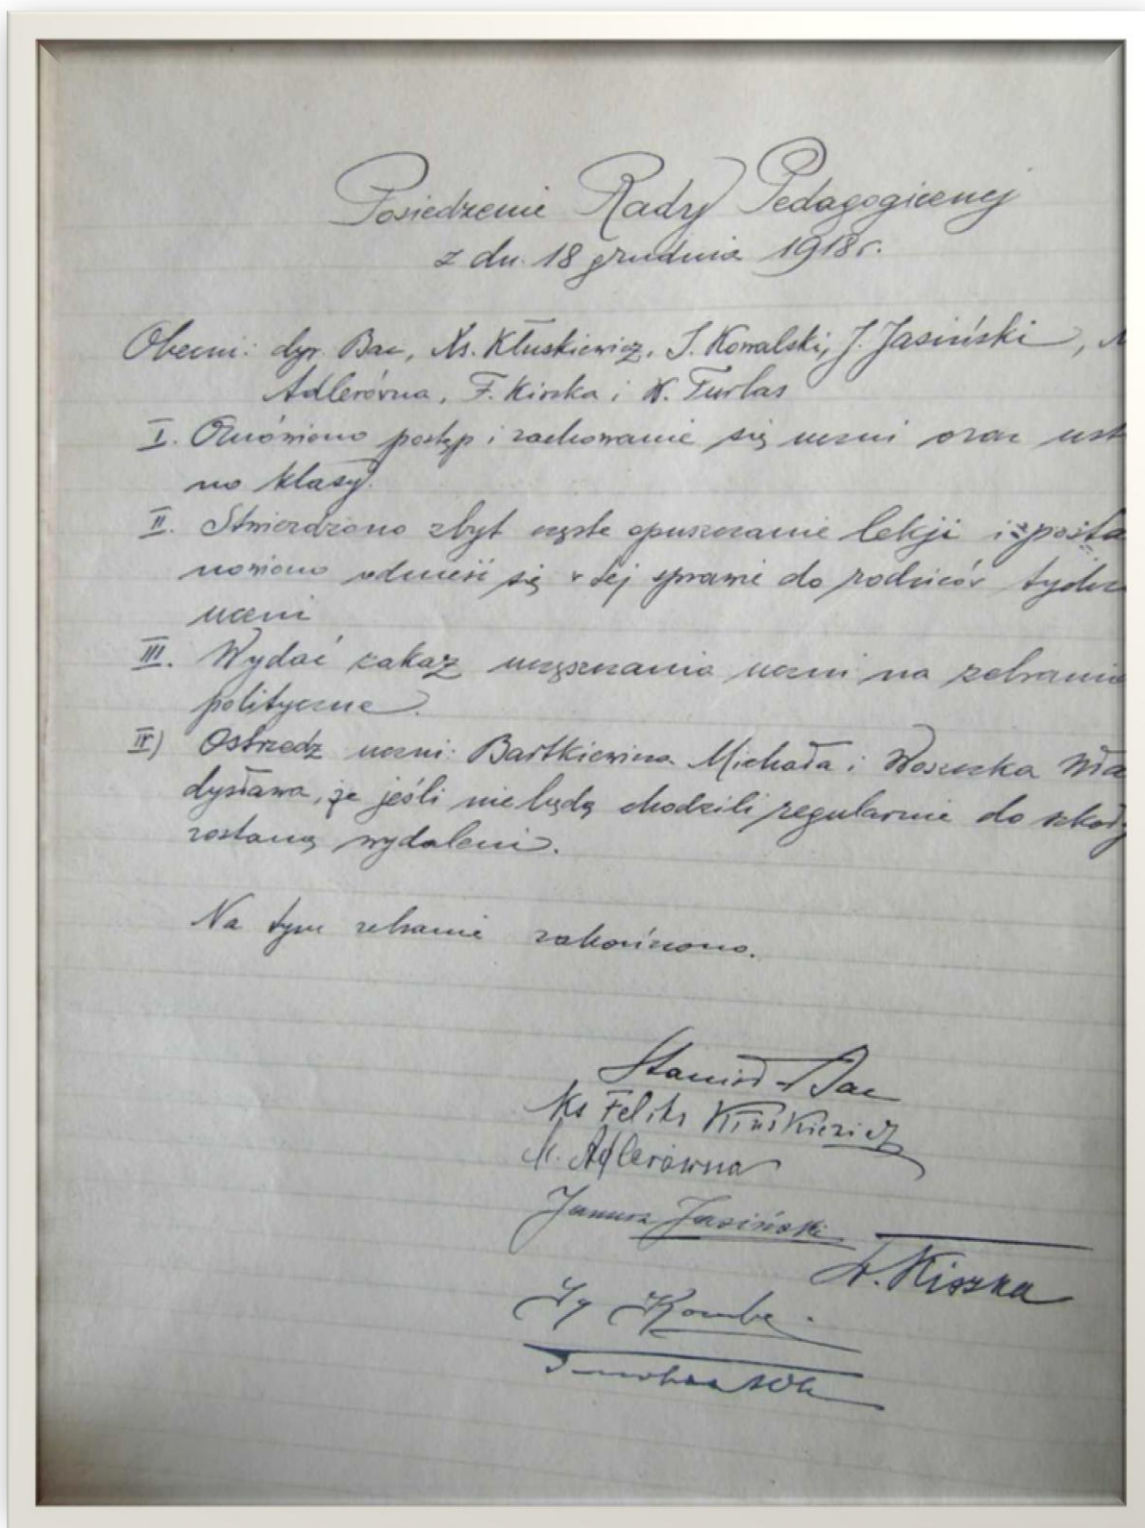 Posiedzenie Rady Pedagogicznej
z dn. 18 grudnia 1918 r.
Obecni: dyr. Bac, Ks. Kłuskiewicz, I. Kowalski, J. Jasiński,
Adlerówna, F. Kiszka i W. Turlas
I. Omówiono postęp i zachowanie się uczni oraz ust
no klasy.
II. Stwierdzono zbyt częste opuszczanie lekcji i posta
nowiono odnieść się w tej sprawie do rodziców tychże
uczni
III. Wydać zakaz uczęszczania uczni na zebranie
polityczne.
IV) Ostrzedz uczni: Bartkiewicza Michała i Woszczka Wła
dysława, że jeśli nie będą chodzili regularnie do szkoły
zostaną wydaleni.
Na tym zebranie zakończono.
Stanisł Bac
Ks Feliks Kłuskiewicz
M. Adlerówna
Janusz Jasiński
F. Kiszka